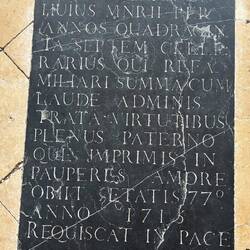 HUIUS MNRII PER
ANNOS QUADRAGIN
TA SEPTEM CELLE
RARIUS QUI RE FA
MILIARI SUMMA CUM
LAUDE ADMINIS
TRATA VIRTUTIBUS
PLENUS PATERNO
QUE IMPRIMIS IN
PAUPERES AMORE
OBIIT ÆTATIS 77º
ANNO 171
REQUISCAT IN PACE